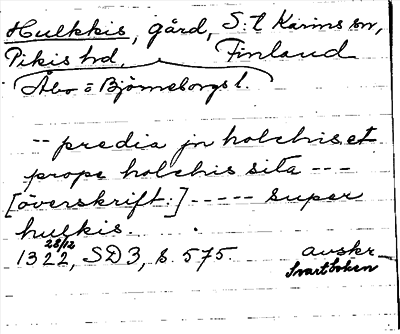 Hulkkis, gård, S:t Karins sn,
Pikis hd, Finland
Åbo o Björneborgs l.
-- predia jn holchis et
prope holchis sita ---
[överskrift.] ----- super
hulkis.
28/12
1322, SD3, s. 575. avskr.
Svartboken